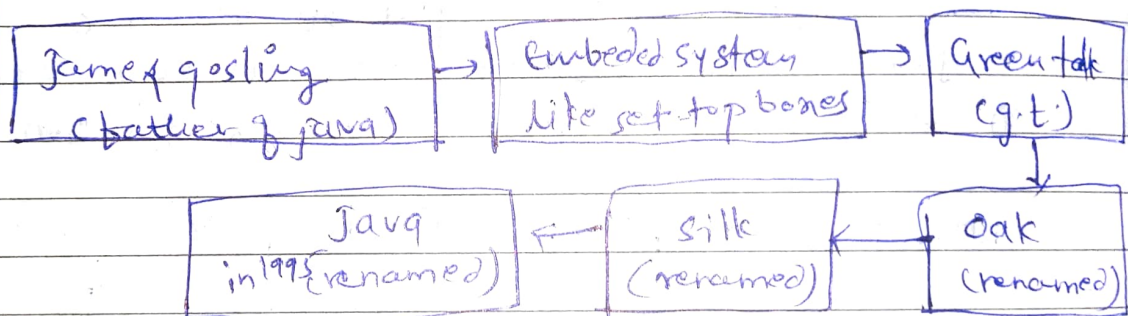 James gosling
(father of java)
Embeded system
like set-top boxes
Green talk
(g.t.)
Oak
(renamed)
silk
(renamed)
Java
in 1995 (renamed)